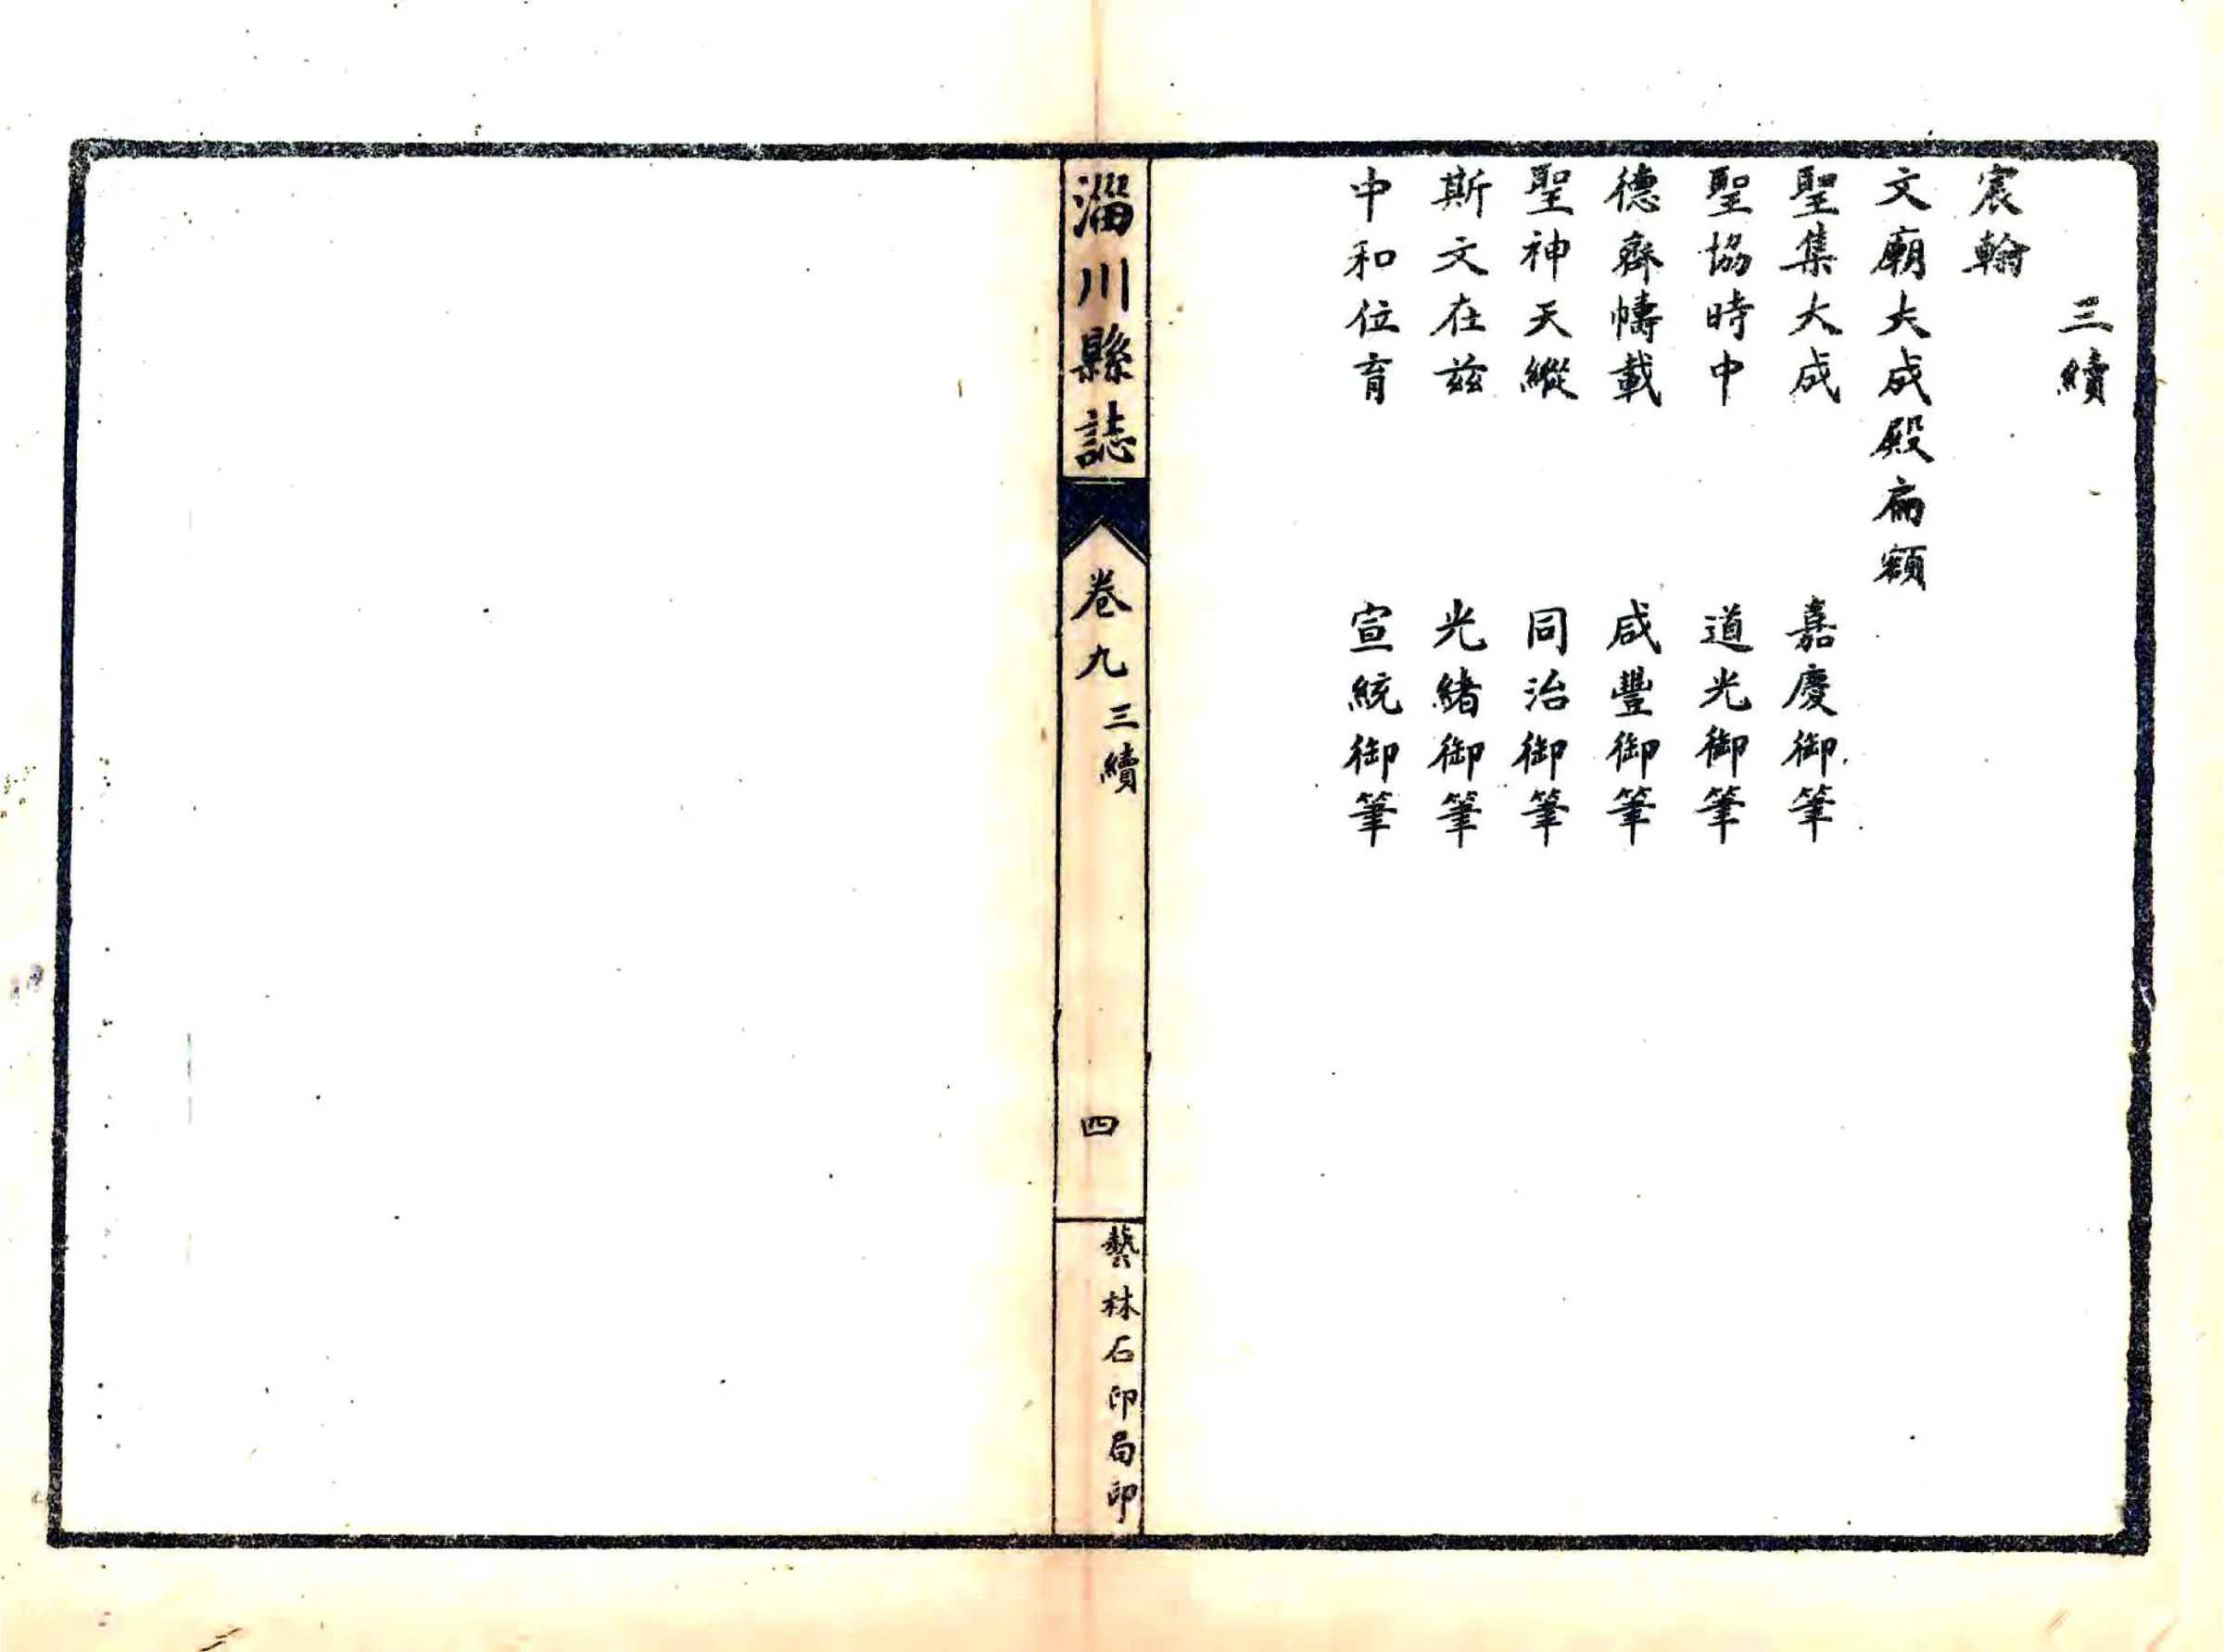 三續
宸翰
文廟大成殿扁額
聖集大成 嘉慶御筆
聖協時中 道光御筆
德齊幬載 咸豐御筆
聖神天縱 同治御筆
斯文在兹 光緒御筆
中和位育 宣統御筆
淄川縣誌
卷九
三續
四
藝林石印局印